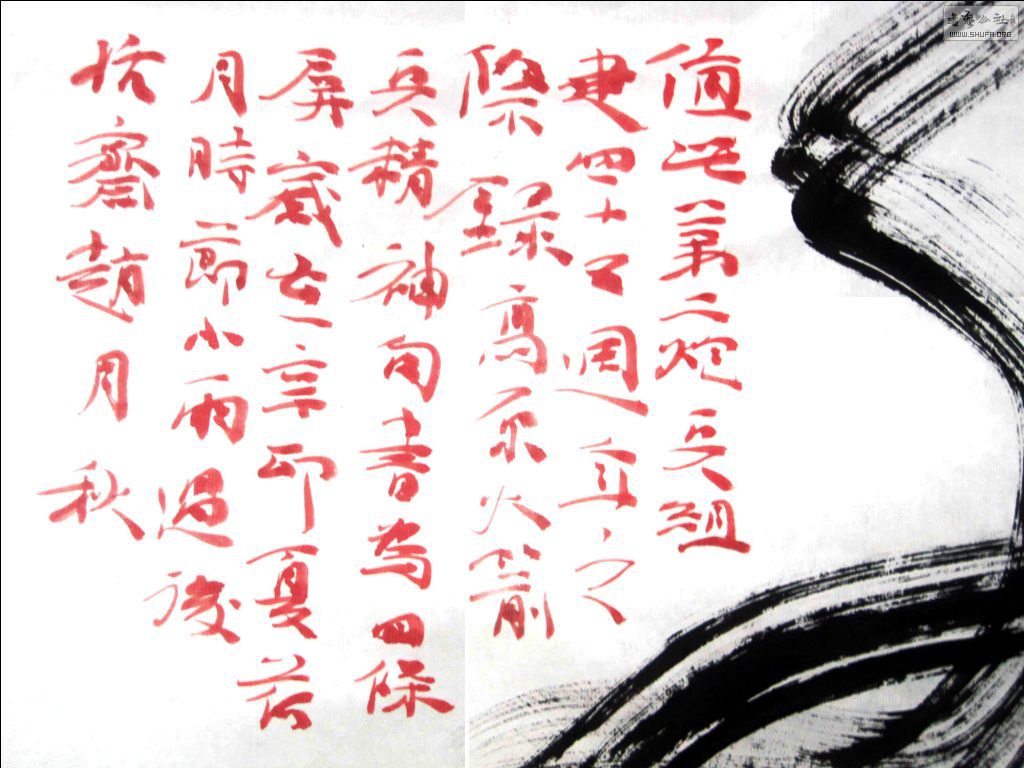 值此第二炮兵組
建四十五週年之
際錄高原火箭
兵精神句書為四條
屏歲在辛卯夏荷
月時節小雨過後
齋趙月秋
書藝公社
WWW.SHUFA.ORG